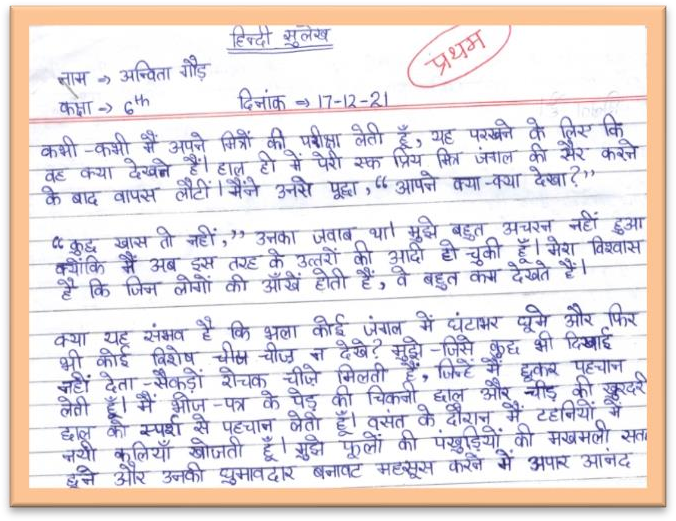 हिन्दी सुलेख
प्रथम
नाम → अन्विता गौड़
कक्षा → 6th दिनांक → 17-12-21
कभी-कभी मैं अपने मित्रों की परीक्षा लेती हूँ, यह परखने के लिए कि
वह क्या देखते हैं। हाल ही में मेरी एक प्रिय मित्र जंगल की सैर करने
के बाद वापस लौटीं। मैंने उनसे पूछा, “आपने क्या-क्या देखा?”
“कुछ खास तो नहीं,” उनका जवाब था। मुझे बहुत अचरज नहीं हुआ
क्योंकि मैं अब इस तरह के उत्तरों की आदी हो चुकी हूँ। मेरा विश्वास
है कि जिन लोगों की आँखें होती हैं, वे बहुत कम देखते हैं।
क्या यह संभव है कि भला कोई जंगल में घंटाभर घूमे और फिर
भी कोई विशेष चीज चीज न देखे? मुझे-जिसे कुछ भी दिखाई
नहीं देता-सैकड़ों रोचक चीजे मिलती हैं, जिन्हें मैं छूकर पहचान
लेती हूँ। मैं भोज-पत्र के पेड़ की चिकनी छाल और चीड़ की खुरदरी
छाल को स्पर्श से पहचान लेती हूँ। वसंत के दौरान मैं टहनियों में
नयी कलियाँ खोजती हूँ। मुझे फूलों की पंखुड़ियों की मखमली सत
छूने और उनकी घुमावदार बनावट महसूस करने में अपार आनंद